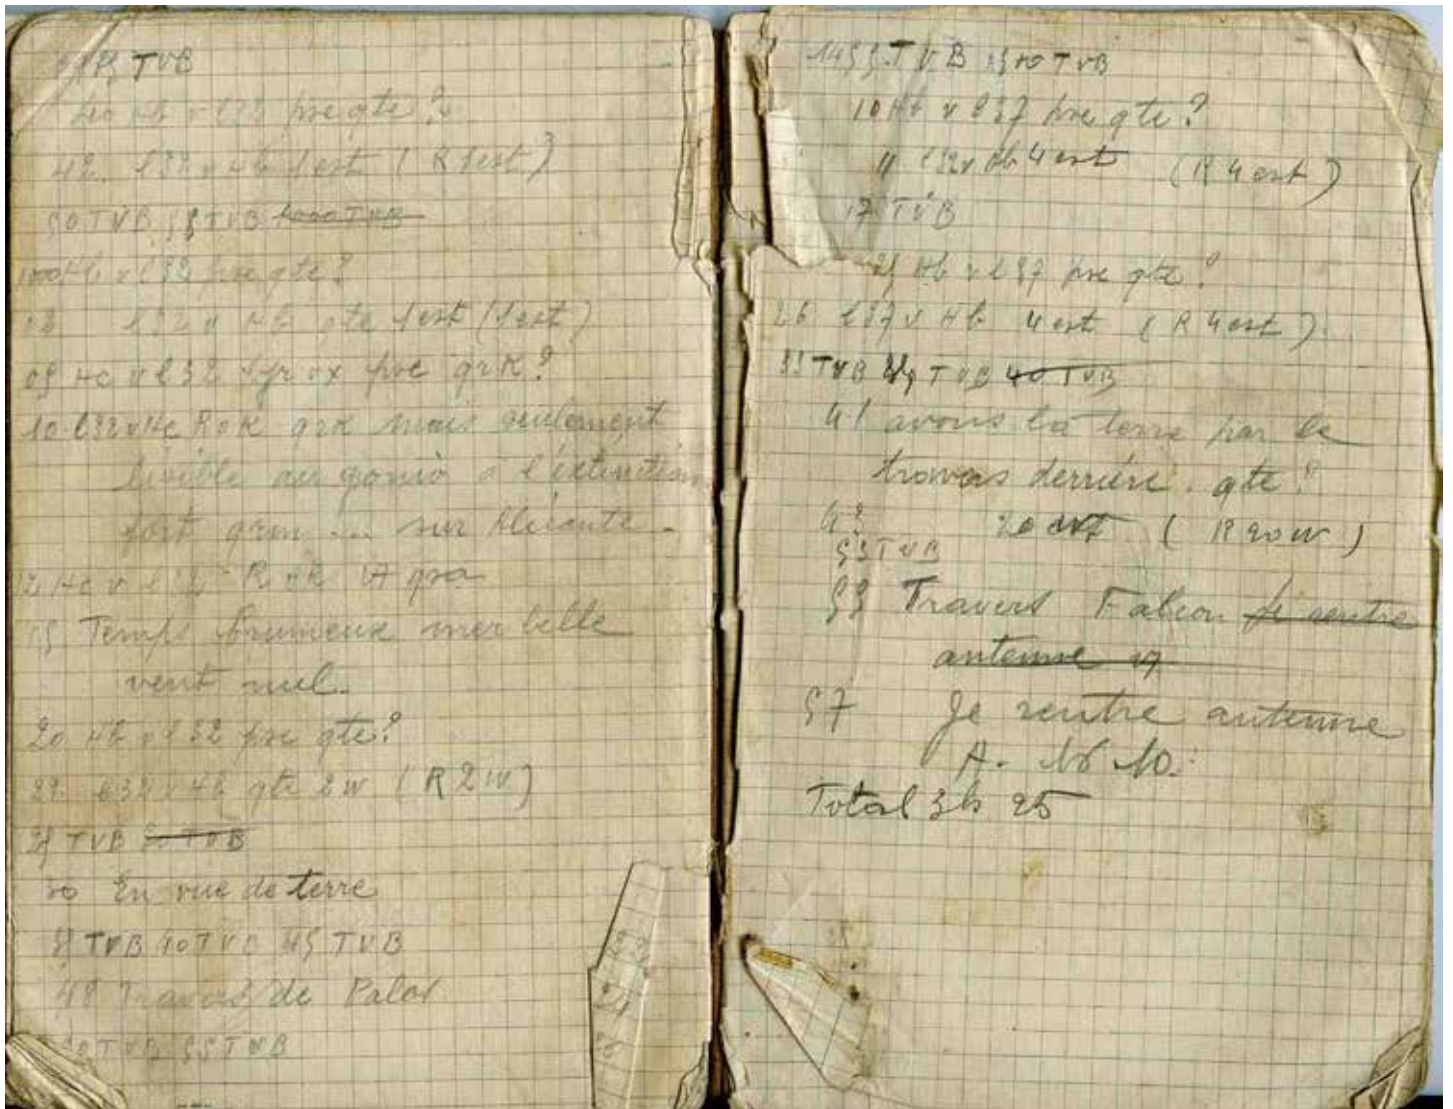 TVB
40 Hb v l32 pse qte?
42 l32 v Hb 1est (R 1est)
50 TVB 55 TVB 1000 TVB
1000 Hb v l32 pse qte?
02 l32 v Hb qte 1est (1est)
05 Hc v l32 pse qrk?
10 l32 v Hc R ok qrk mais seulement
lisible au gonio à l'extinction
fort qrm ... sur Alicante.
12 Hc v l32 R ok
15 Temps brumeux mer belle
vent nul.
20 Hb v l32 pse qte?
22 l32 v Hb qte 2W (R 2W)
TVB
30 En vue de terre
TVB 40 TVB 45 TVB
48 Travers de Palos
50 TVB 55 TVB
TVB TVB
10 Hb v l37 pse qte?
11 l32 v Hb 4 est (R 4 est)
17 TVB
25 Hb v l37 pse qte?
26 l37 v Hb 4 est (R 4 est)
33 TVB TVB 40 TVB
41 avons la terre par le
travers derrière. qte?
43 20 (R 20 W)
53 TVB
Travers Falcon je rentre
antenne
57 Je rentre antenne
A.
Total 3h 25
22
24